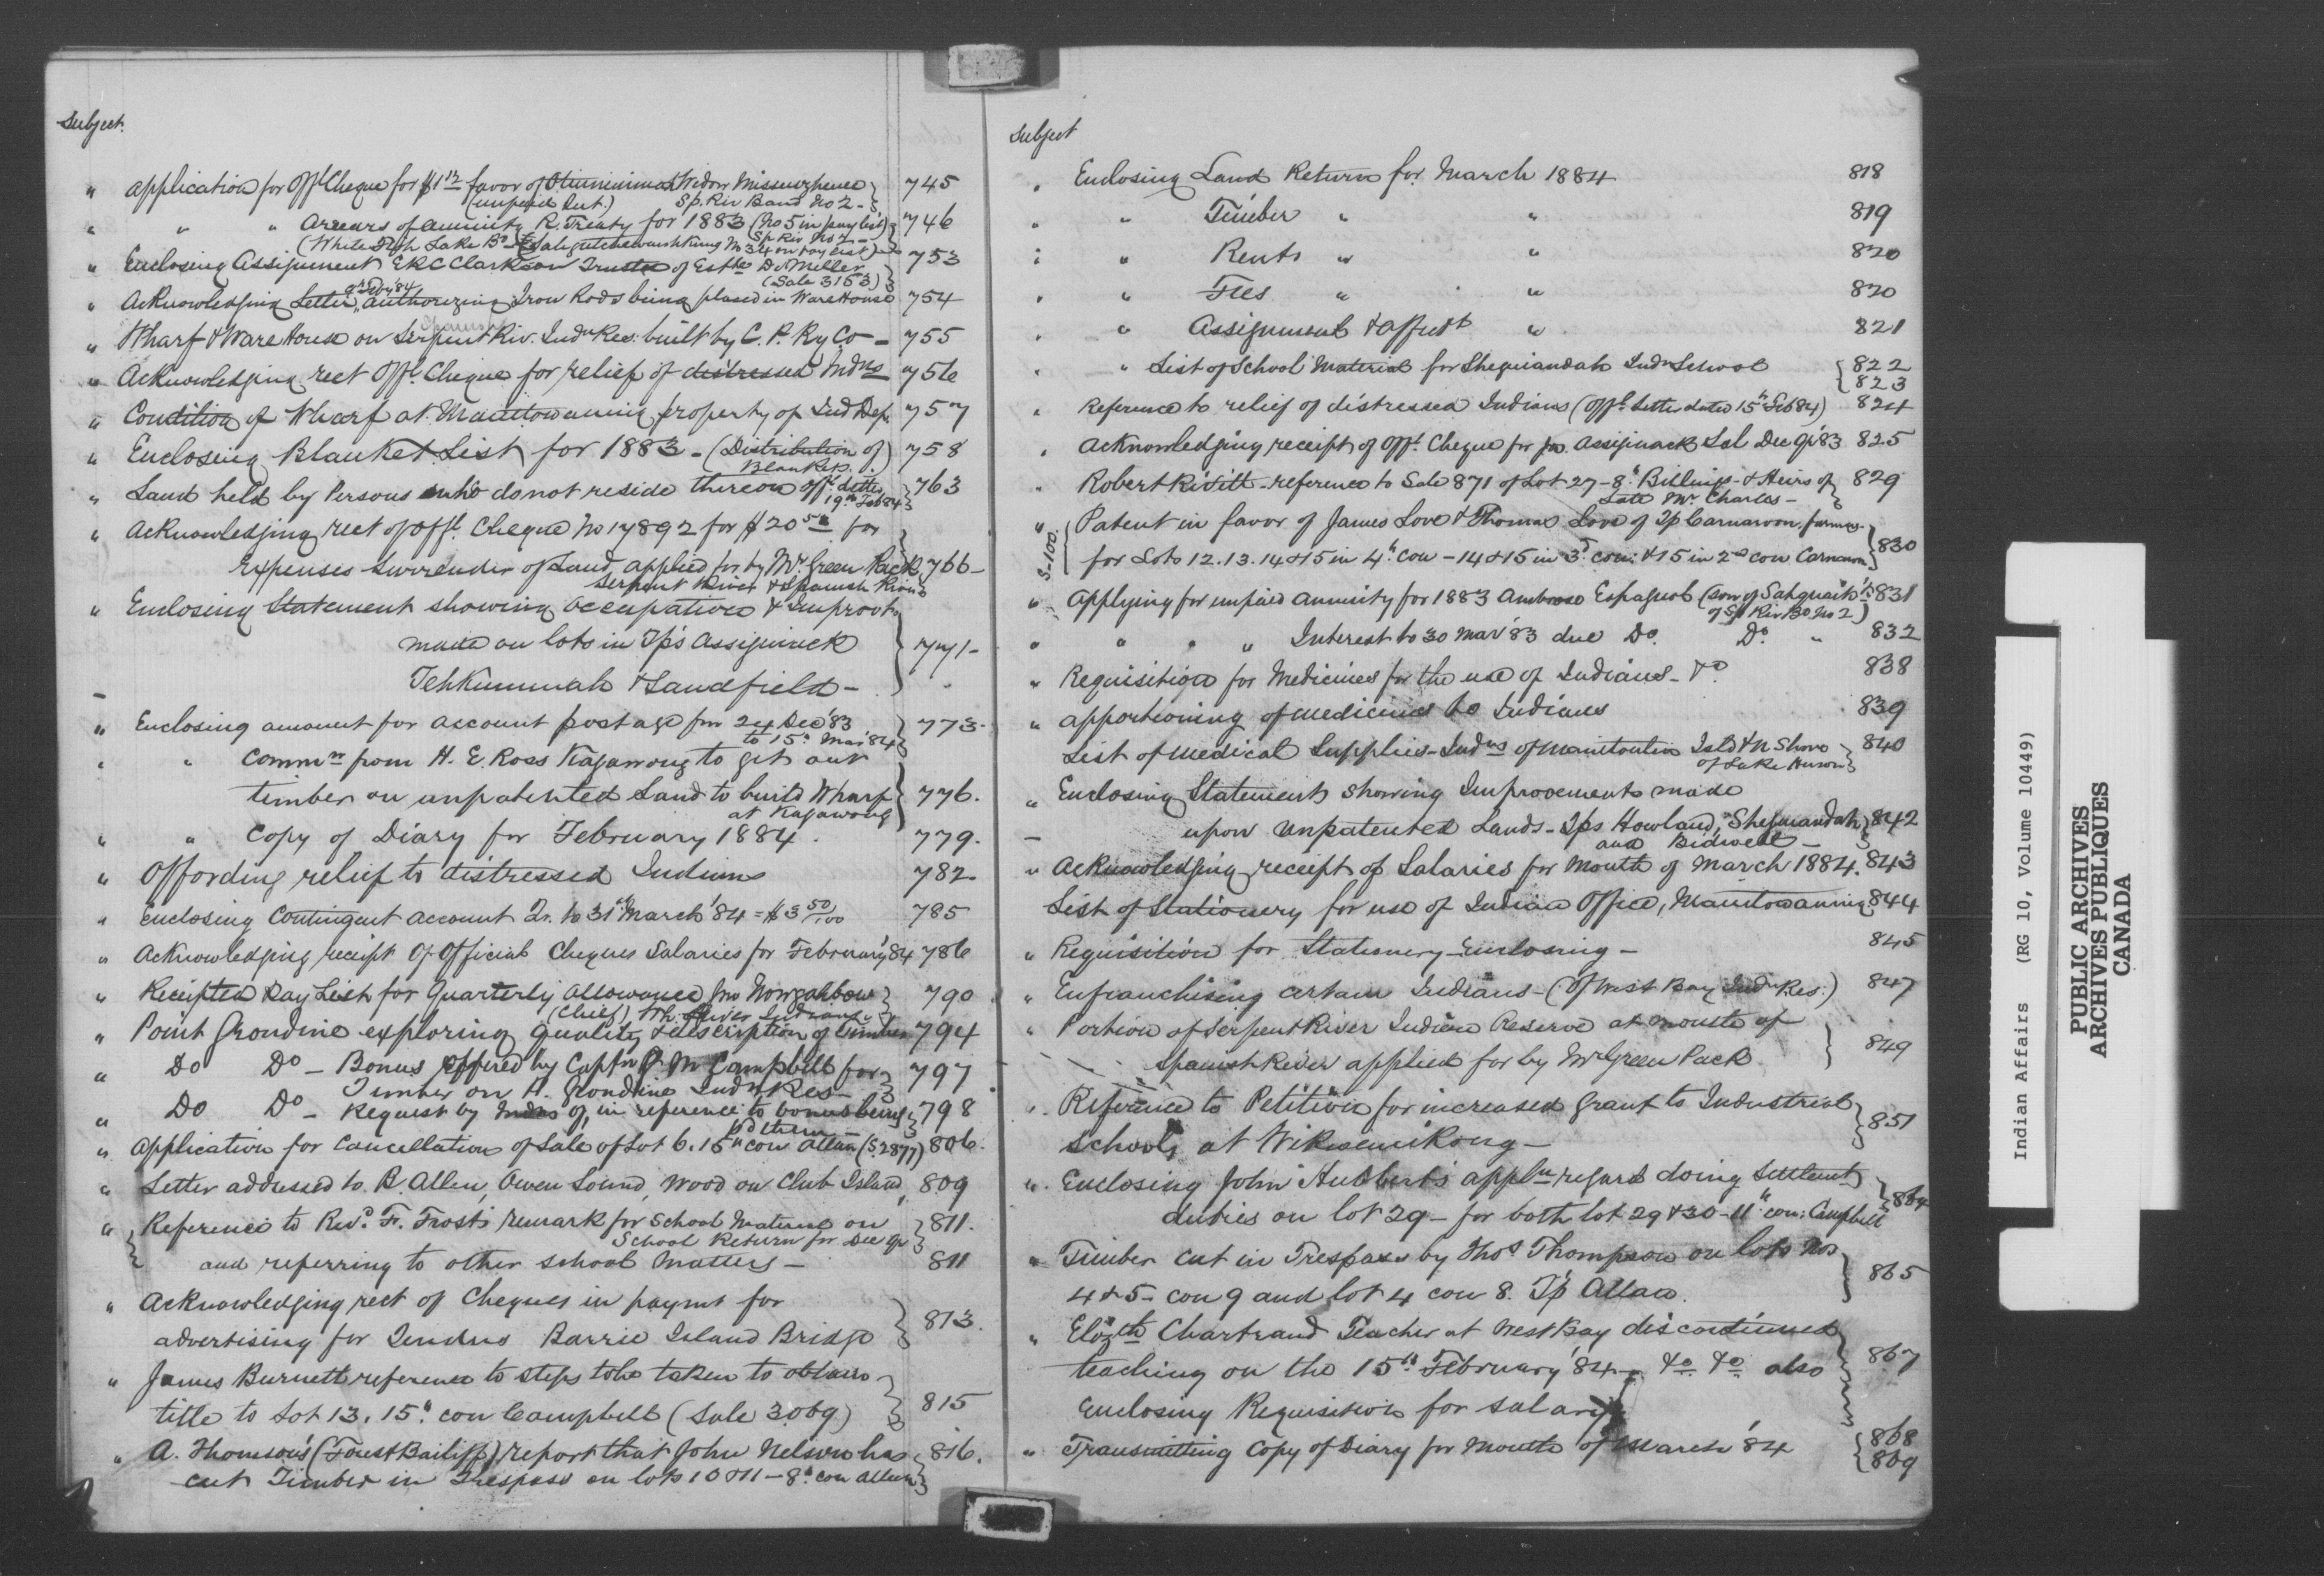 Subject.
" Application for Offl Cheque for $1 12 favor of Widow 745
(unpaid Int.) Sp. Riv Band No 2 -
" " " Arrears of annuity R. Treaty for 1883 (No 5 in pay list) 746
(White Fish Lake Bd Sp Riv No 2 - No 34 on pay list)
" Enclosing Assignment E R C Clarkson Trustee of Estte D. Miller 753
(Sale 3153)
" Acknowledging Letter authorizing Iron Rods being placed in Ware House 754
Spanish
" Wharf & Ware House on Serpent Riv. Indn Res: built by C. P. Ry Co - 755
" Acknowledging rect Offl Cheque for relief of distressed Indns 756
" Condition of Wharf at Manitowaning property of Ind Dep. 757
" Enclosing Blanket List for 1883 - (Distribution of 758
Blankets.)
" Land held by Persons who do not reside thereon Offl letter 763
19th Feb 84
" Acknowledging rect of Offl Cheque No 17892 for $20 50 for
Expenses Surrender of Land applied for by Mr Green Pack 766 -
Serpent River & Spanish River
" Enclosing Statement showing occupation & Improvts
made on lots in Tp's Assiginack 771 -
Tehkummah & Sandfield -
" Enclosing amount for account postage from 24 Dec '83 773 -
to 15th Mar '84
" " Commn from H. E. Ross Kagawong to get out
timber on unpatented Land to build Wharf 776.
at Kagawong
" " Copy of Diary for February 1884. 779.
" Affording relief to distressed Indians 782 -
" Enclosing Contingent account Qr. to 31st March '84 = $3 50/100 785
" Acknowledging receipt of Official Cheques Salaries for February '84 786
" Receipted Pay List for Quarterly Allowance 790
(Chief) Wh. River Indians
" Point Grondine exploring quality & description of timber 794
" Do Do - Bonus offered by Captn P M Campbell for 797
Timber on P. Grondine Indn Res -
" Do Do - Request by Indns of, in reference to bonus being 798
pd them -
" Application for Cancellation of Sale of Lot 6. 15th con Allan (S. 2877) 806.
" Letter addressed to B. Allen, Owen Sound, Wood on Club Island, 809
" Reference to Revd F. Frost's remark for School Material on 811.
School Return for Dec Qr
and referring to other school matters - 811
" Acknowledging rect of Cheques in paymt for
advertising for Tenders Barrie Island Bridge 813.
" James Burnett reference to steps to be taken to obtain
title to Lot 13. 15th con Campbell (Sale 3069) 815
" A. Thomson's (Forest Bailiff) report that John Nelson has 816.
cut Timber in Trespass on lots 10 & 11 - 8th con Allan
Subject
" Enclosing Land Return for March 1884 818
" " Timber " " 819
" " Rents " " 820
" " Fees " " 820
" " Assignment & Affidt " 821
" " List of School Material for Sheguiandah Indn School 822
823
" Reference to relief of distressed Indians (Offl Letter dated 15th Feb 84) 824
" Acknowledging receipt of Offl Cheque for Jas. Assiginack Sal Dec Qr '83 825
" Robert Rivitt - reference to Sale 871 of Lot 27 - 8th Billings - & Heirs of 829
Late Mr Charles -
S - 100.
" Patent in favor of James Love & Thomas Love of Tp Carnarvon, farmers.
for Lots 12. 13. 14 & 15 in 4th Con - 14 & 15 in 3d con: & 15 in 2nd con Carnarvon 830
" Applying for unpaid annuity for 1883 Ambrose Espagnol (son of 831
of Sp Riv Bd No 2)
" " " " Interest to 30 Mar '83 due Do. Do. " 832
" Requisition for Medicines for the use of Indians - &c 838
" Apportioning of Medicines to Indians 839
List of Medical Supplies - Indns of Manitoulin Isld & N Shore 840
of Lake Huron
" Enclosing Statements showing Improvements made
- upon Unpatented Lands - Tps Howland, Sheguiandah 842
and Bidwell -
" Acknowledging receipt of Salaries for Month of March 1884. 843
List of Stationery for use of Indian Office, Manitowaning 844
" Requisition for Stationery - Enclosing - 845
" Enfranchising certain Indians - (Of West Bay Indn Res:) 847
" Portion of Serpent River Indian Reserve at mouth of
Spanish River applied for by Mr Green Pack 849
" Reference to Petition for increased grant to Industrial
Schools at Wikwemikong - 851
" Enclosing John Hubbert's appln regard doing Settlemt
duties on lot 29 - for both lot 29 & 30 - 11th con: Campbell 864
" Timber cut in Trespass by Thos Thompson on lots Nos
4 & 5 - con 9 and lot 4 con 8. Tp Allan. 865
" Elizth Chartrand Teacher at West Bay discontinued
teaching on the 15th February '84 - &c &c also 867
Enclosing Requisition for salary
" Transmitting Copy of Diary for Month of March '84 868
869
Indian Affairs (RG 10, Volume 10449)
PUBLIC ARCHIVES
ARCHIVES PUBLIQUES
CANADA